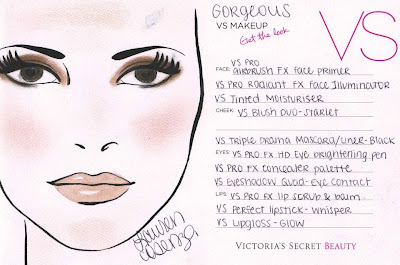 GORGEOUS
VS MAKEUP
Get the look
VS
VS PRO
FACE: AIRBRUSH FX FACE PRIMER
VS PRO RADIANT FX FACE ILLUMINATOR
VS TINTED MOISTURISER
CHEEK: VS BLUSH DUO - STARLET
VS TRIPLE DRAMA MASCARA/LINER - BLACK
EYES: VS PRO FX HD EYE BRIGHTENING PEN
VS PRO FX CONCEALER PALETTE
VS EYESHADOW QUAD - EYE CONTACT
LIPS: VS PRO FX LIP SCRUB & BALM
VS PERFECT LIPSTICK - WHISPER
VS LIPGLOSS - GLOW
Lauren
VICTORIA'S SECRET BEAUTY